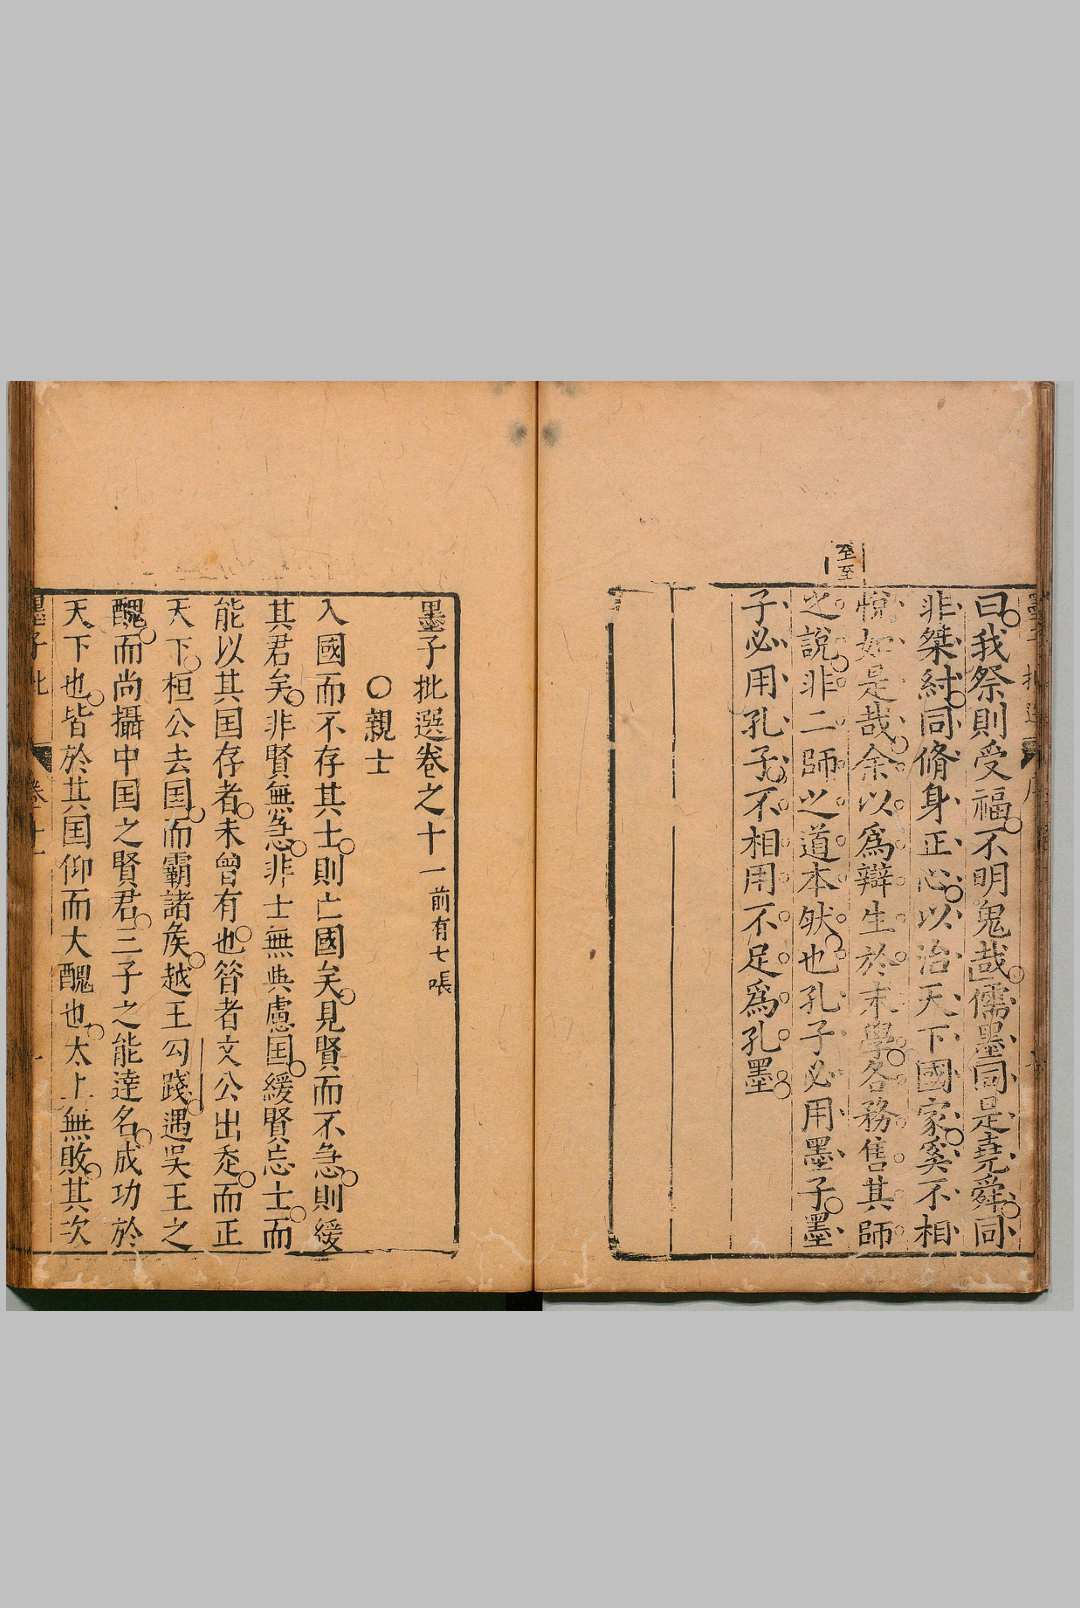 至至
曰我祭則受福不明鬼哉儒墨同是堯舜同
非桀紂同脩身正心以治天下國家奚不相
悅如是哉余以爲辯生於末學各務售其師
之說非二師之道本然也孔子必用墨子墨
子必用孔子不相用不足爲孔墨
墨子批選卷之十一前有七張
〇親士
入國而不存其士則亡國矣見賢而不急則緩
其君矣非賢無急非士無與慮囯緩賢忘士而
能以其囯存者未曾有也昝者文公出赱而正
天下桓公去囯而霸諸矦越王勾踐遇吳王之
醜而尚攝中囯之賢君三子之能達名成功於
天下也皆於其囯仰而大醜也太上無敗其次
墨子批
卷十一